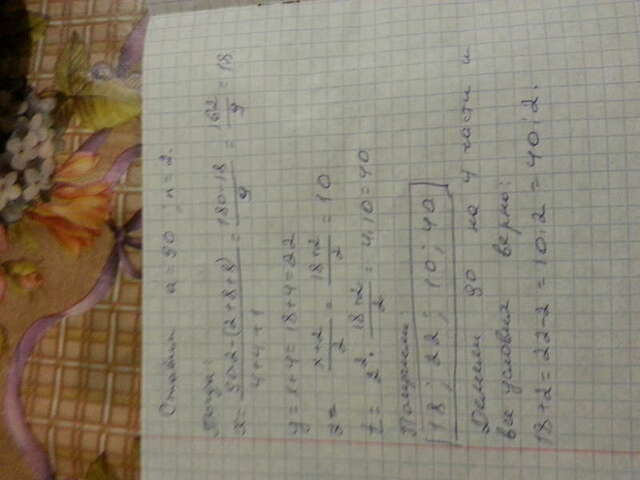 Ставим a = 90 ; n = 2.
Тогда:
x = \frac{90·2-(2+8+8)}{4+4+1} = \frac{180-18}{9} = \frac{162}{9} = 18
y = x+4 = 18+4 = 22
z = \frac{x+2}{2} = \frac{18+2}{2} = 10
t = 2². \frac{18+2}{2} = 4.10 = 40
Получаем:
18 ; 22 ; 10 ; 40
Делим 90 на 4 части и
все условия верно:
18+2 = 22-2 = 10.2 = 40:2.